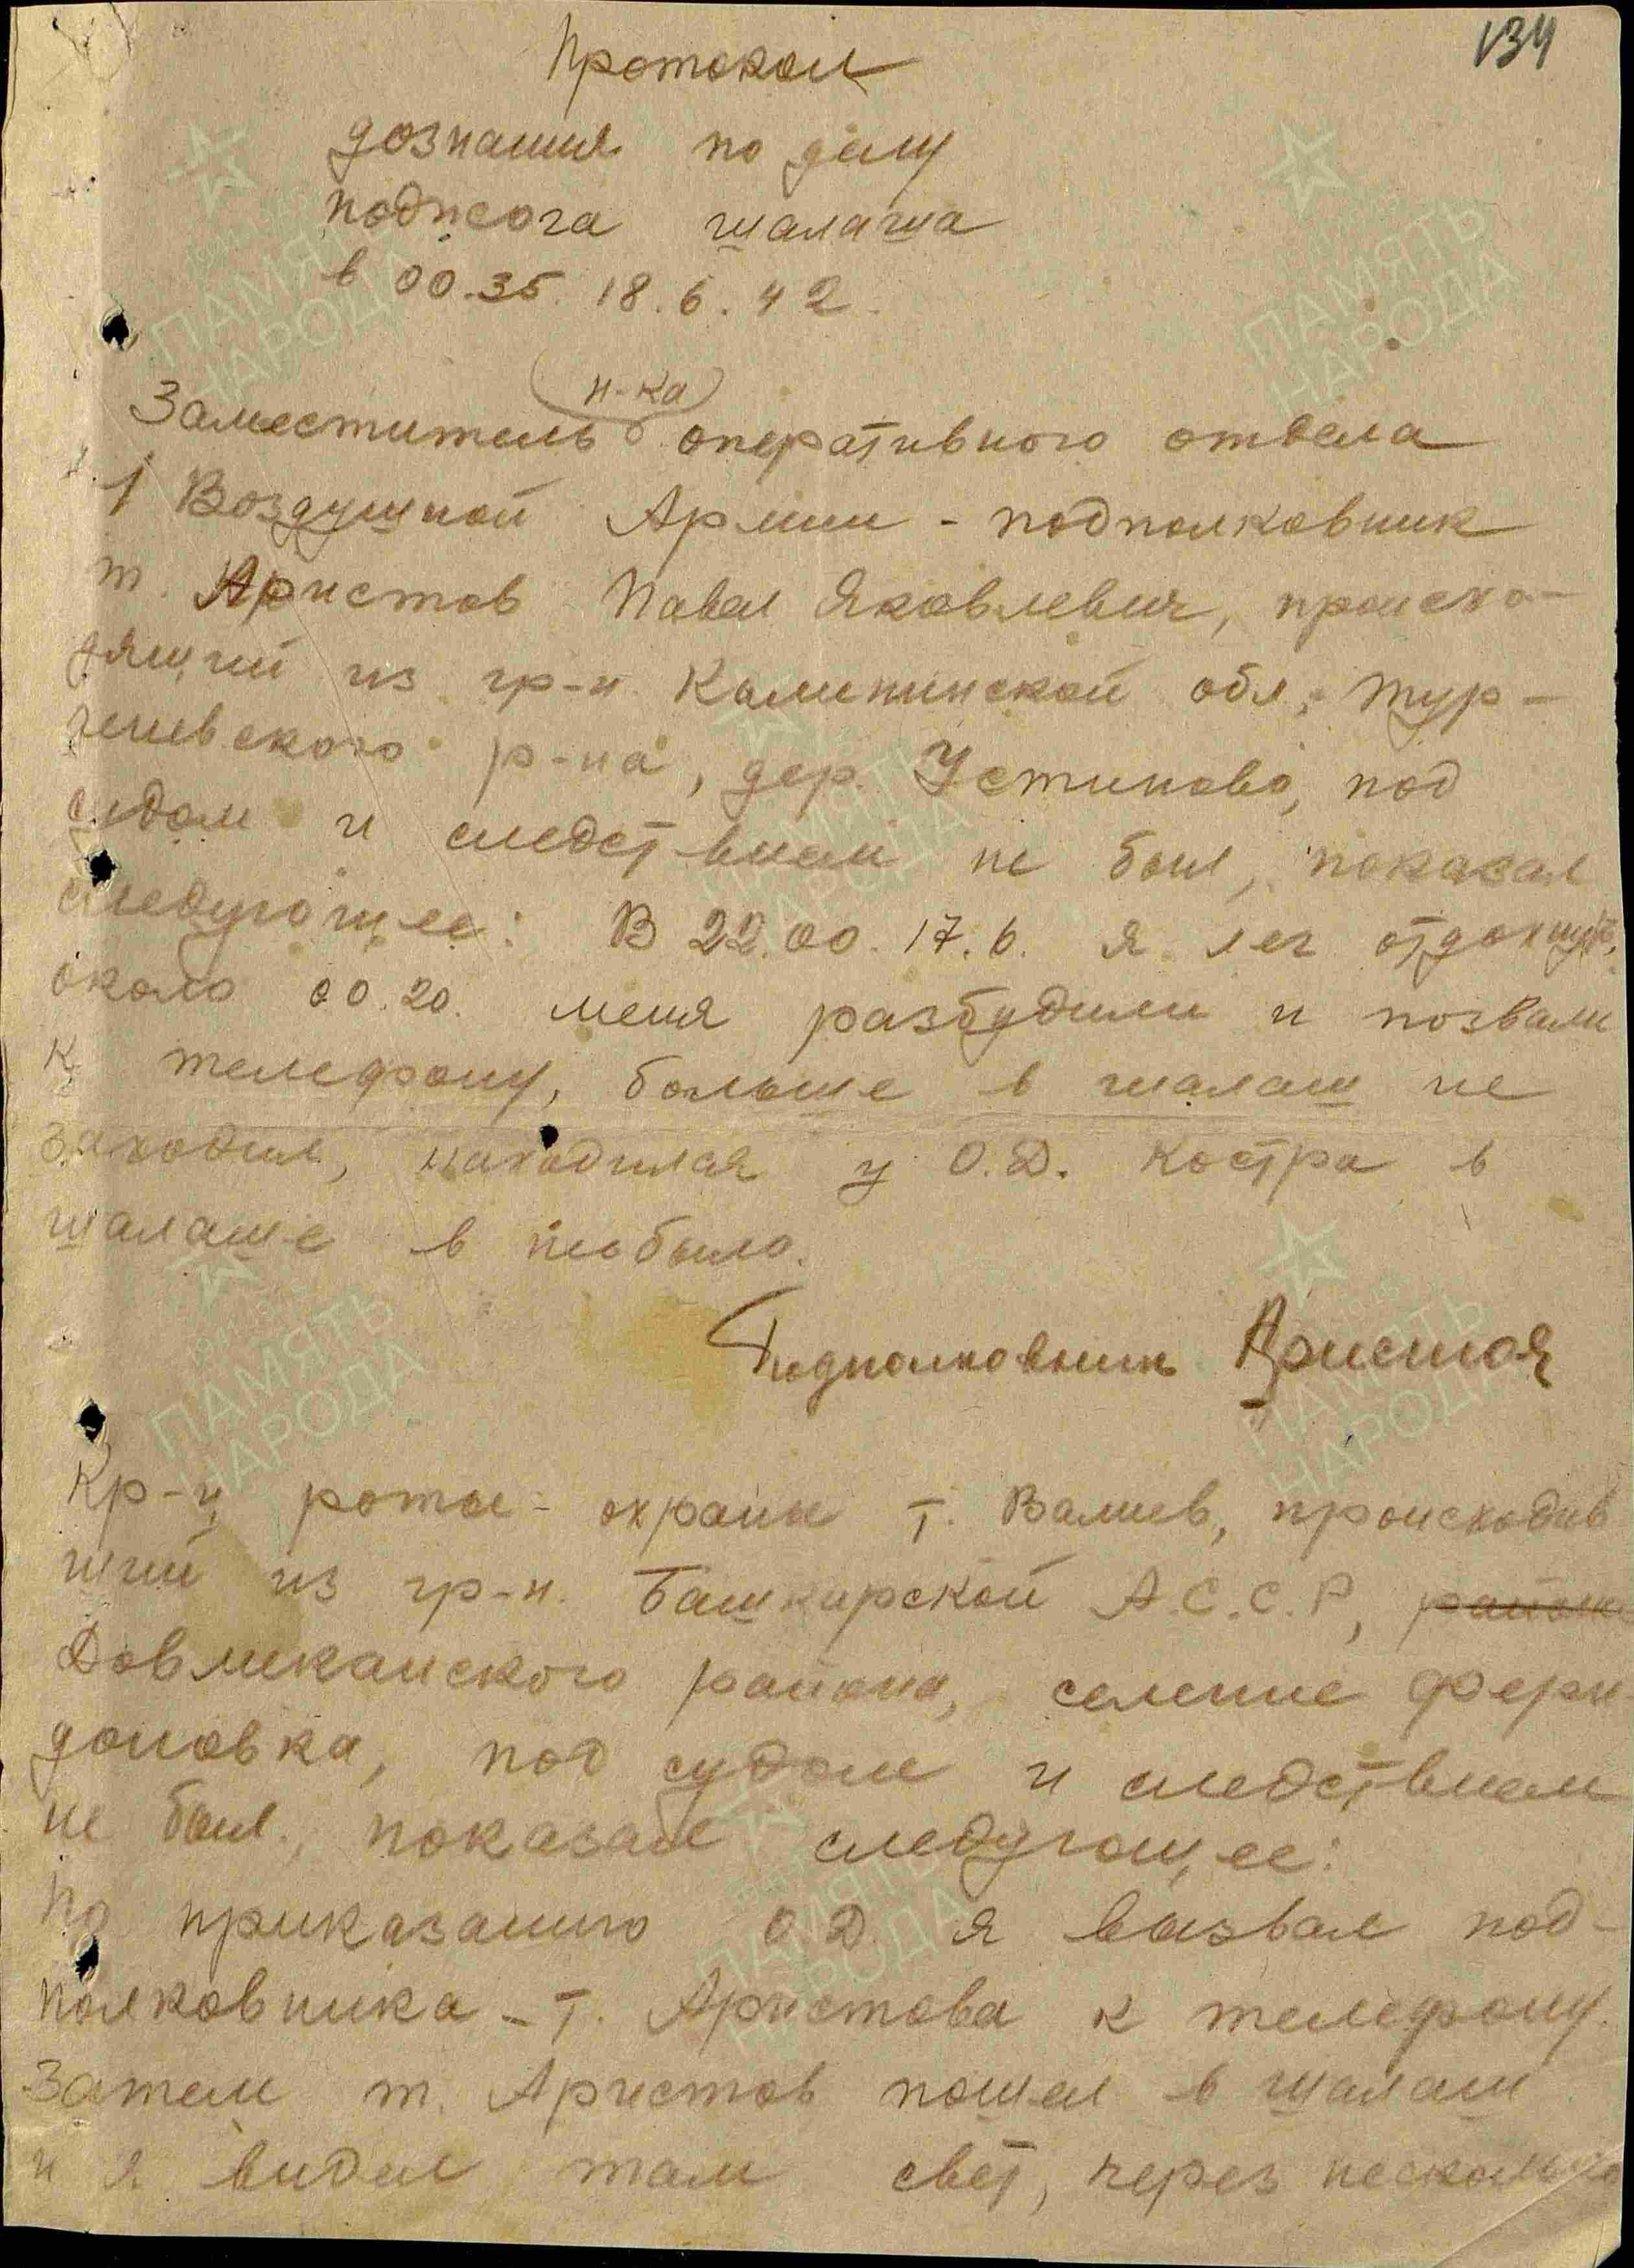 134
Протокол
дознания по делу
поджога шалаша
в 00.35. 18.6.42.
н-ка
Заместитель оперативного отдела
1 Воздушной Армии - подполковник
т. Аристов Павел Яковлевич, происхо-
дящий из гр-н. Калининской обл, Тур-
гиновского р-на, дер. Устиново, под
судом и следствием не был, показал
следующее: В 22.00. 17.6. я лег отдохнуть,
около 00.20. меня разбудили и позвали
к телефону, больше в шалаш не
заходил, находился у О.Д. Костра в
шалаше в не было.
Подполковник Аристов
Кр-ц роты - охраны т. Валиев, происходив
ший из гр-н. Башкирской А.С.С.Р, района
Давликанского района, селение Фери
доновка, под судом и следствием
не был, показал следующее:
По приказанию О.Д. я вызвал под-
полковника - т. Аристова к телефону.
Затем т. Аристов пошел в шалаш
и я видел там свет, через несколько
ПАМЯТЬ
НАРОДА